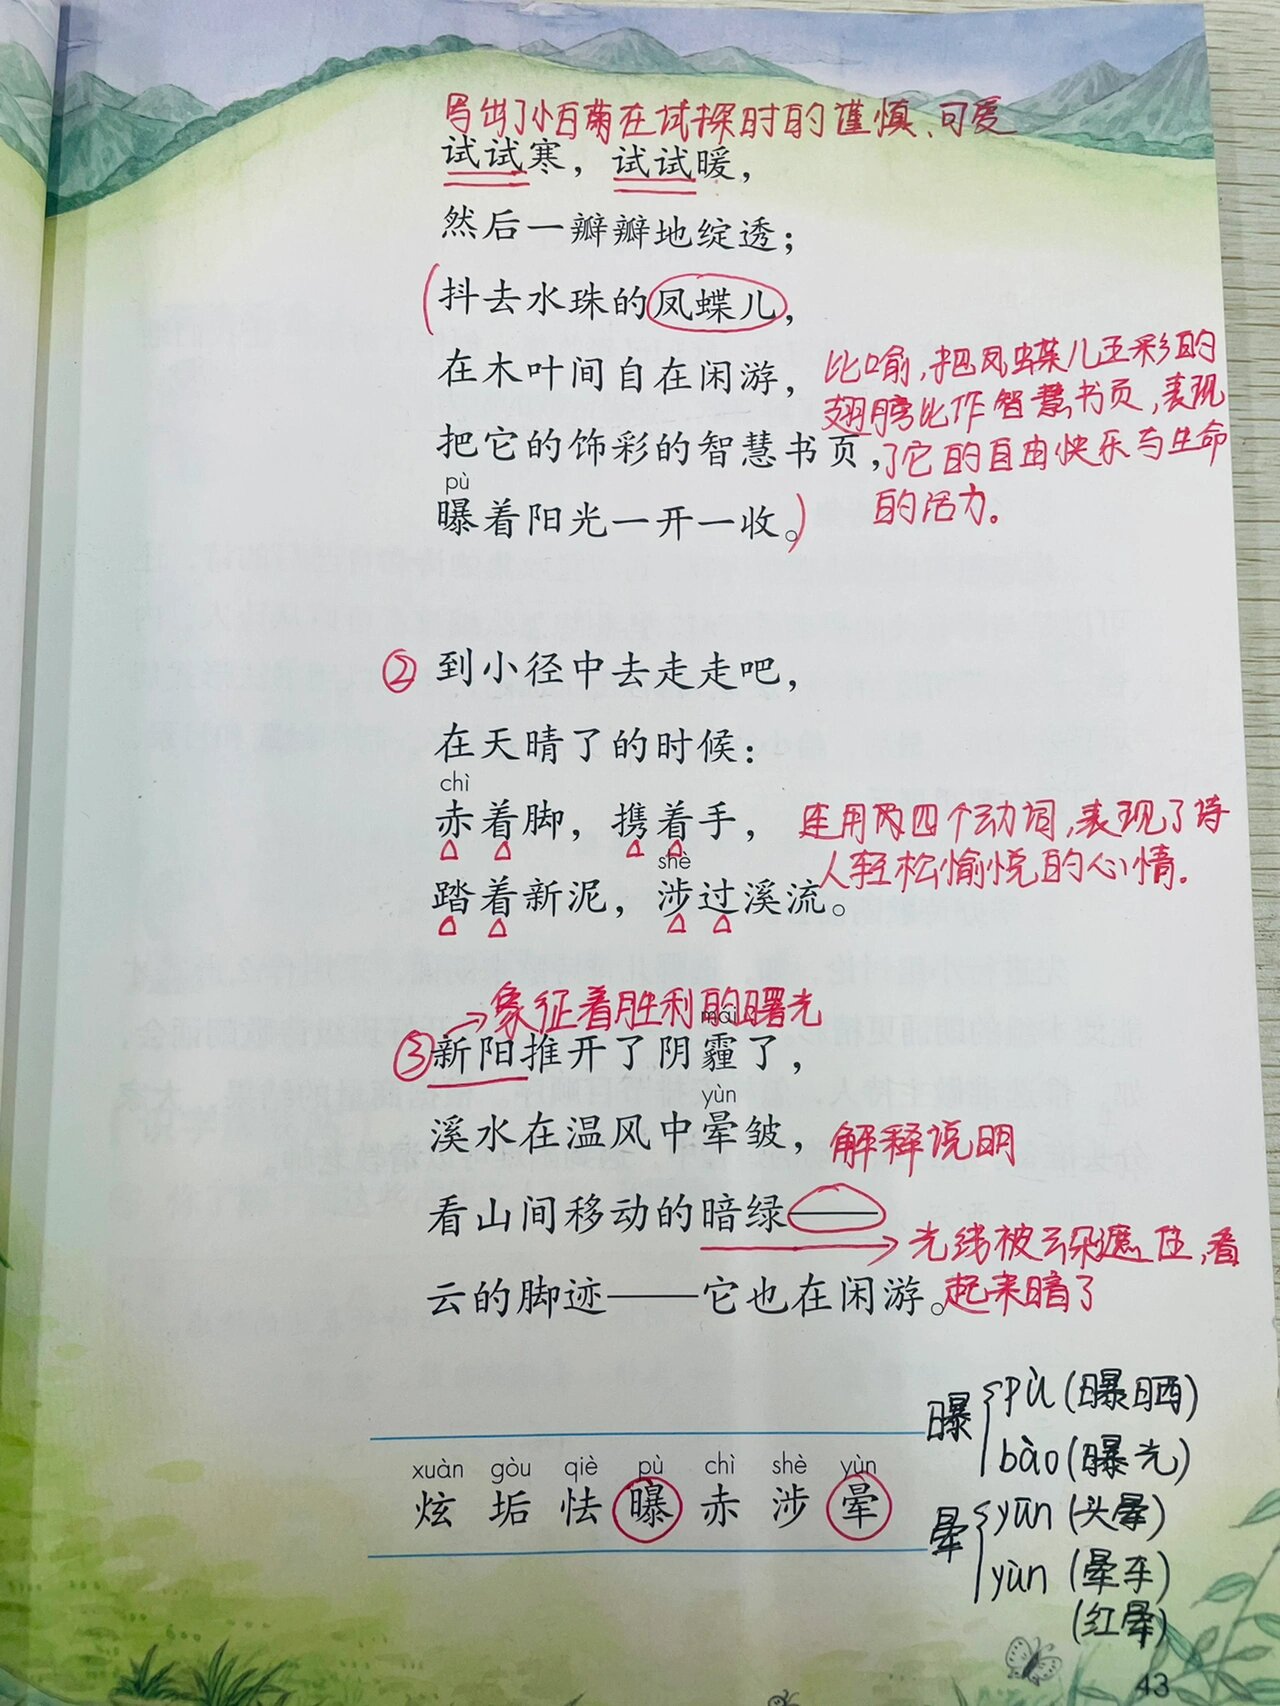 写出了小白菊在试探时的谨慎、可爱
试试寒，试试暖，
然后一瓣瓣地绽透；
抖去水珠的凤蝶儿，
在木叶间自在闲游，
把它的饰彩的智慧书页，
pù
曝着阳光一开一收。
比喻，把凤蝶儿五彩的
翅膀比作智慧书页，表现
了它的自由快乐与生命
的活力。
② 到小径中去走走吧，
在天晴了的时候：
chì
赤着脚，携着手，
shè
踏着新泥，涉过溪流。
连用四个动词，表现了诗
人轻松愉悦的心情。
象征着胜利的曙光
mái
③ 新阳推开了阴霾了，
yùn
溪水在温风中晕皱，
看山间移动的暗绿——
解释说明
云的脚迹——它也在闲游。
光线被云朵遮住，看
起来暗了
xuàn gòu qiè pù chì shè yùn
炫 垢 怯 曝 赤 涉 晕
曝 pù (曝晒)
bào (曝光)
晕 yūn (头晕)
yùn (晕车)
(红晕)
43